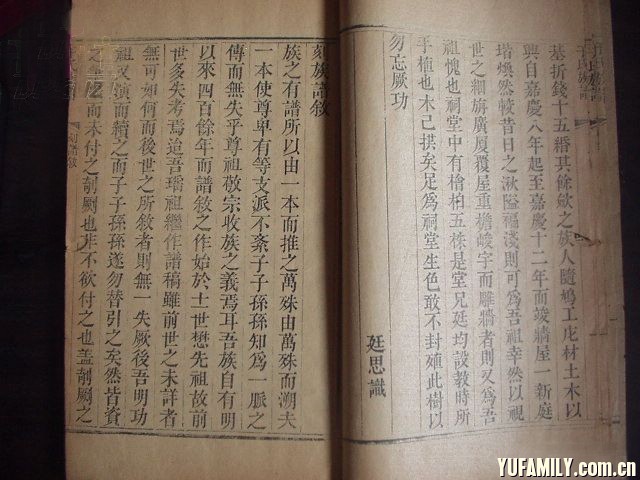 基折錢十五緡其餘斂之族人隨鳩工庀材土木以
興自嘉慶八年起至嘉慶十二年而竣牆屋一新庭
堦煥然較昔日之湫隘福淺則可為吾祖幸然以視
世之細旃廣厦覆屋重檐峻宇而雕牆者則又為吾
祖愧也祠堂中有檜柏五株是堂兄廷均設教時所
手植也木已拱矣足為祠堂生色敢不封殖此樹以
勿忘厥功
廷思識
刻族譜敘
族之有譜所以由一本而推之萬殊由萬殊而溯夫
一本使尊卑有等支派不紊子子孫孫知為一脈之
傳而無失乎尊祖敬宗收族之義焉耳吾族自有明
以來四百餘年而譜敘之作始於十世懋先祖故前
世多失考焉迨吾璿祖繼作譜稿雖前世之未詳者
無可如何而後世之所敘者則無一失厥後吾明功
祖又演而續之而子子孫孫遂勿替引之矣然皆資
之 而未付之剞劂也非不欲付之也蓋剞劂之
刻譜敘
氏族譜
YUFAMILY.com.cn